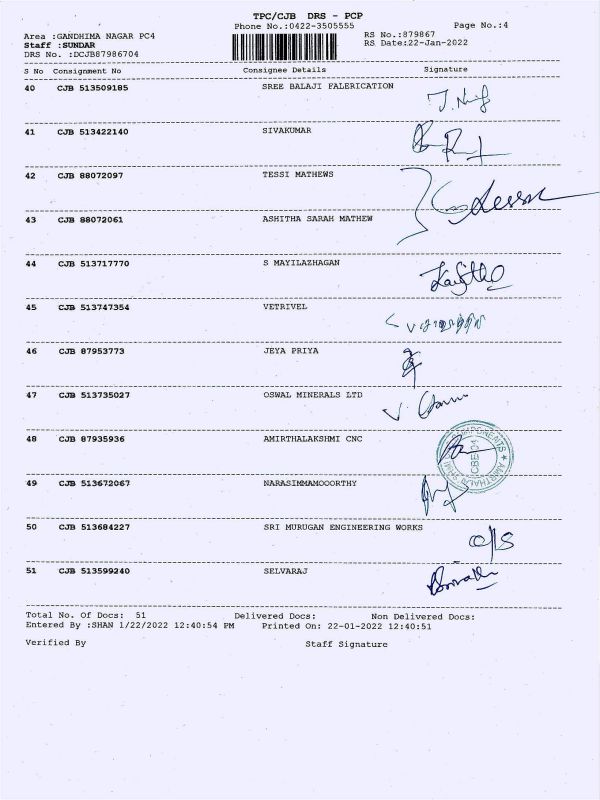 TPC/CJB DRS - PCP
Phone No.:0422-3505555 Page No.:4
Area :GANDHIMA NAGAR PC4 RS No.:879867
Staff :SUNDAR RS Date:22-Jan-2022
DRS No. :DCJB87986704
S No Consignment No Consignee Details Signature
40 CJB 513509185 SREE BALAJI FALERICATION
41 CJB 513422140 SIVAKUMAR
42 CJB 88072097 TESSI MATHEWS
43 CJB 88072061 ASHITHA SARAH MATHEW
44 CJB 513717770 S MAYILAZHAGAN
45 CJB 513747354 VETRIVEL
46 CJB 87953773 JEYA PRIYA
47 CJB 513735027 OSWAL MINERALS LTD
48 CJB 87935936 AMIRTHALAKSHMI CNC
49 CJB 513672067 NARASIMMAMOOORTHY
50 CJB 513684227 SRI MURUGAN ENGINEERING WORKS
51 CJB 513599240 SELVARAJ
Total No. Of Docs: 51 Delivered Docs: Non Delivered Docs:
Entered By :SHAN 1/22/2022 12:40:54 PM Printed On: 22-01-2022 12:40:51
Verified By Staff Signature